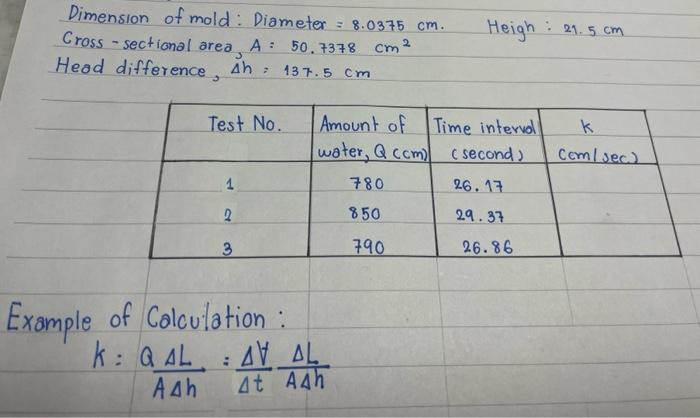 Dimension of mold : Diameter = 8.0375 cm. Heigh : 21.5 cm
Cross-sectional area, A : 50.7378 cm²
Head difference, Δh : 137.5 cm
Test No. Amount of water, Q (cm) Time interval (second) k (cm/sec)
1 780 26.17
2 850 29.37
3 790 26.86
Example of Calculation :
k : Q ΔL / A Δh : ΔV / Δt ΔL / A Δh